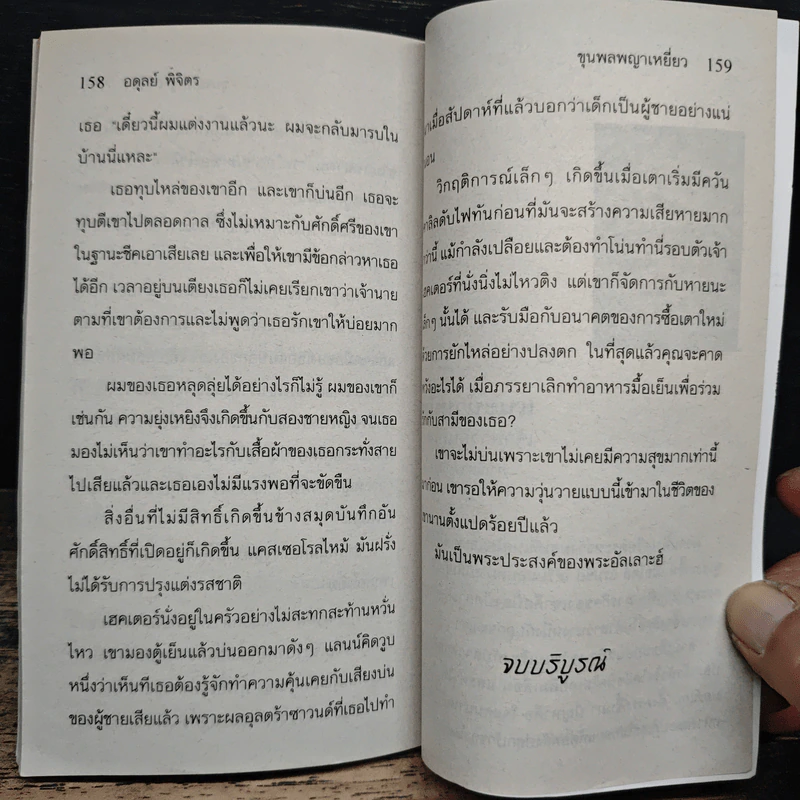 158 อดุลย์ พิจิตร
เธอ "เดี๋ยวนี้ผมแต่งงานแล้วนะ ผมจะกลับมารบใน
บ้านนี่แหละ"
เธอทุบไหล่ของเขาอีก และเขาก็บ่นอีก เธอจะ
ทุบตีเขาไปตลอดกาล ซึ่งไม่เหมาะกับศักดิ์ศรีของเขา
ในฐานะชีคเอาเสียเลย และเพื่อให้เขามีข้อกล่าวหาเธอ
ได้อีก เวลาอยู่บนเตียงเธอก็ไม่เคยเรียกเขาว่าเจ้านาย
ตามที่เขาต้องการและไม่พูดว่าเธอรักเขาให้บ่อยมาก
พอ
ผมของเธอหลุดลุ่ยได้อย่างไรก็ไม่รู้ ผมของเขาก็
เช่นกัน ความยุ่งเหยิงจึงเกิดขึ้นกับสองชายหญิง จนเธอ
มองไม่เห็นว่าเขาทำอะไรกับเสื้อผ้าของเธอกระทั่งสาย
ไปเสียแล้วและเธอเองไม่มีแรงพอที่จะขัดขืน
สิ่งอื่นที่ไม่มีสิทธิ์เกิดขึ้นข้างสมุดบันทึกอัน
ศักดิ์สิทธิ์ที่เปิดอยู่ก็เกิดขึ้น แคสเซอโรลไหม้ มันฝรั่ง
ไม่ได้รับการปรุงแต่งรสชาติ
เฮคเตอร์นั่งอยู่ในครัวอย่างไม่สะทกสะท้านหวั่น
ไหว เขามองตู้เย็นแล้วบ่นออกมาดังๆ แลนน์คิดวูบ
หนึ่งว่าเห็นทีเธอต้องรู้จักทำความคุ้นเคยกับเสียงบ่น
ของผู้ชายเสียแล้ว เพราะผลอุลตร้าซาวนด์ที่เธอไปทำ
ขุนพลพญาเหยี่ยว 159
าเมื่อสัปดาห์ที่แล้วบอกว่าเด็กเป็นผู้ชายอย่างแน่
อน
วิกฤติการณ์เล็กๆ เกิดขึ้นเมื่อเตาเริ่มมีควัน
าลิลดับไฟทันก่อนที่มันจะสร้างความเสียหายมาก
ว่านี้ แม้กำลังเปลือยและต้องทำโน่นทำนี่รอบตัวเจ้า
ฮคเตอร์ที่นั่งนิ่งไม่ไหวติง แต่เขาก็จัดการกับหายนะ
ล็กๆ นั้นได้ และรับมือกับอนาคตของการซื้อเตาใหม่
้วยการยักไหล่อย่างปลงตก ในที่สุดแล้วคุณจะคาด
วังอะไรได้ เมื่อภรรยาเลิกทำอาหารมื้อเย็นเพื่อร่วม
ักกับสามีของเธอ?
เขาจะไม่บ่นเพราะเขาไม่เคยมีความสุขมากเท่านี้
าก่อน เขารอให้ความวุ่นวายแบบนี้เข้ามาในชีวิตของ
ขานานตั้งแปดร้อยปีแล้ว
มันเป็นพระประสงค์ของพระอัลเลาะฮ์
จบบริบูรณ์